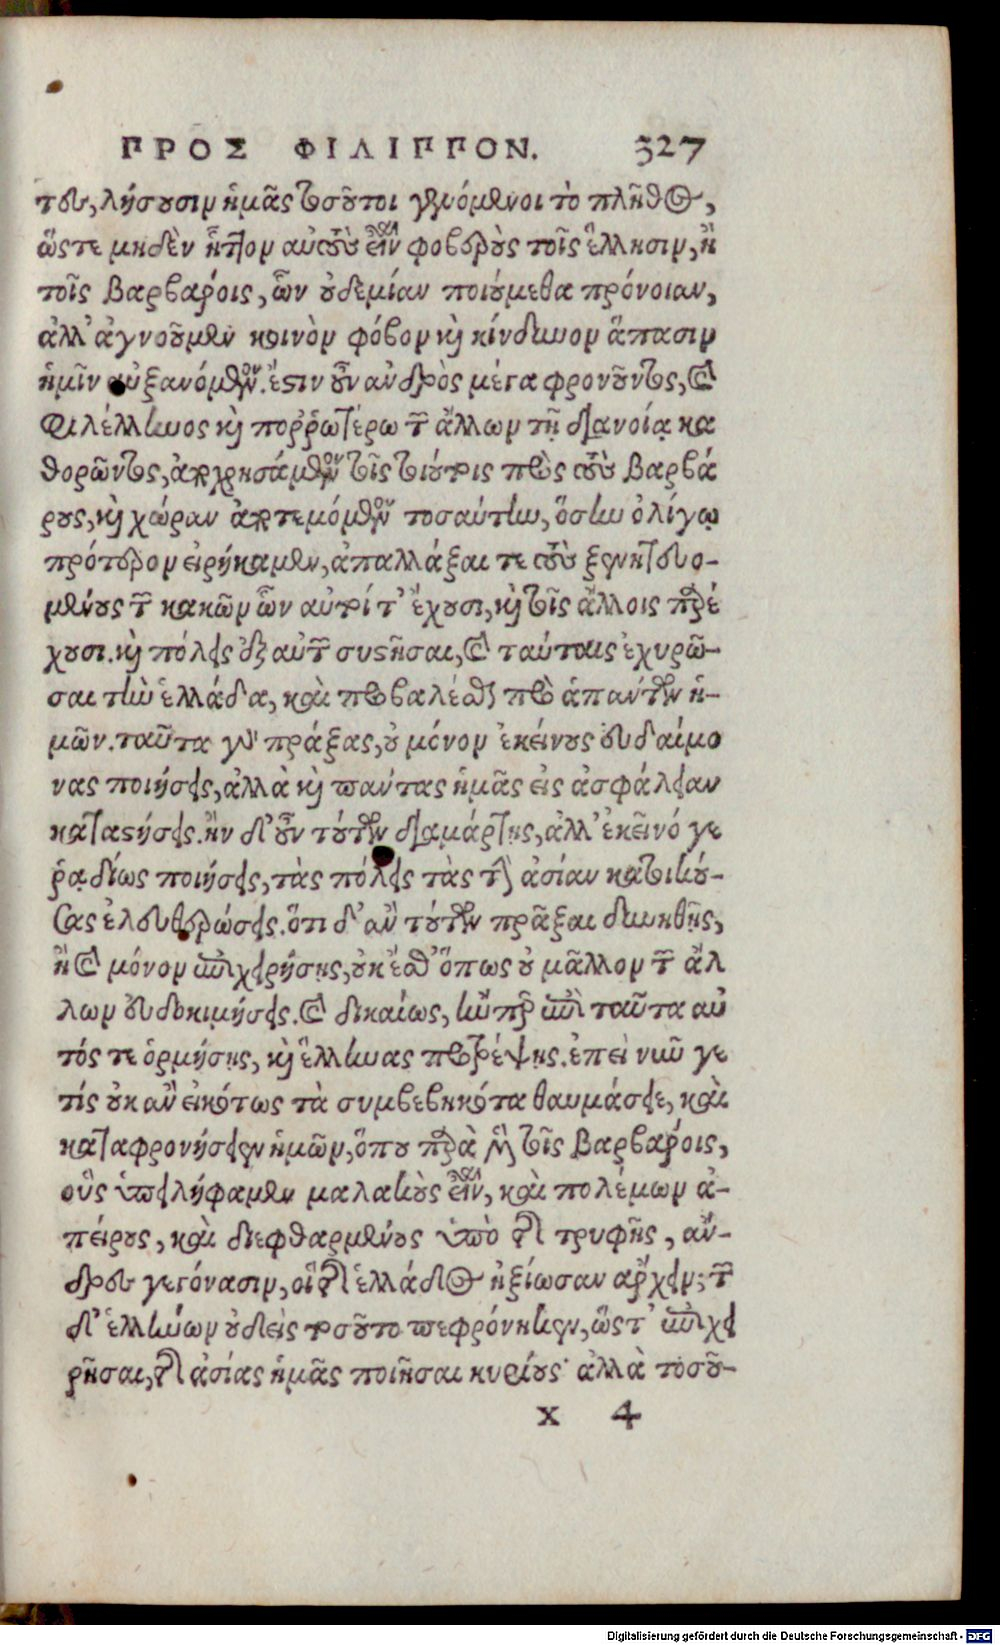 ΠΡΟΣ ΦΙΛΙΠΠΟΝ. 327
του, λήσουσιν ἡμᾶς τοσοῦτοι γενόμενοι τὸ πλῆθος,
ὥστε μηδὲν ἧττον αὐτοὺς εἶναι φοβεροὺς τοῖς ἕλλησιν, ἢ
τοῖς βαρβάροις, ὧν οὐδεμίαν ποιούμεθα πρόνοιαν,
ἀλλ' ἀγνοοῦμεν κοινὸν φόβον καὶ κίνδυνον ἅπασιν
ἡμῖν αὐξανόμενον. ἔστιν οὖν ἀνδρὸς μέγα φρονοῦντος, καὶ
φιλέλληνος καὶ πορρωτέρω τῶν ἄλλων τῇ διανοίᾳ κα
θορῶντος, ἀποχρησάμενον τοῖς τοιούτοις πρὸς τοὺς βαρβά
ρους, καὶ χώραν ἀποτεμόμενον τοσαύτην, ὅσην ὀλίγῳ
πρότερον εἰρήκαμεν, ἀπαλλάξαι τε τοὺς ξενιτευο-
μένους τῶν κακῶν ὧν αὐτοί τ' ἔχουσι, καὶ τοῖς ἄλλοις παρέ
χουσι. καὶ πόλεις ἐξ αὐτῶν συστῆσαι, καὶ ταύταις ἐχυρῶ-
σαι τὴν ἑλλάδα, καὶ προβαλέσθαι πρὸ ἁπάντων ἡ-
μῶν. ταῦτα γὰρ πράξας, οὐ μόνον ἐκείνους εὐδαίμο
νας ποιήσεις, ἀλλὰ καὶ πάντας ἡμᾶς εἰς ἀσφάλειαν
καταστήσεις. ἢν δ' οὖν τούτων διαμάρτῃς, ἀλλ' ἐκεῖνό γε
ῥᾳδίως ποιήσεις, τὰς πόλεις τὰς τὴν ἀσίαν κατοικού-
σας ἐλευθερώσεις. ὅτι δ' ἂν τούτων πρᾶξαι δυνηθῇς,
ἢ καὶ μόνον ἐπιχειρήσῃς, οὐκ ἔσθ' ὅπως οὐ μᾶλλον τῶν ἄλ
λων εὐδοκιμήσεις. καὶ δικαίως, ἤνπερ ἐπὶ ταῦτα αὐ
τός τε ὁρμήσῃς, καὶ ἕλληνας προτρέψῃς. ἐπεὶ νῦν γε
τίς οὐκ ἂν εἰκότως τὰ συμβεβηκότα θαυμάσειε, καὶ
καταφρονήσειεν ἡμῶν, ὅπου παρὰ μὲν τοῖς βαρβάροις,
οὓς ὑπειλήφαμεν μαλακοὺς εἶναι, καὶ πολέμων ἀ-
πείρους, καὶ διεφθαρμένους ὑπὸ τῆς τρυφῆς, ἄν-
δρες γεγόνασιν, οἳ τῆς ἑλλάδος ἠξίωσαν ἄρχειν; τῶν
δ' ἑλλήνων οὐδεὶς τοσοῦτο πεφρόνηκεν, ὥστ' ἐπιχει
ρῆσαι, τῆς ἀσίας ἡμᾶς ποιῆσαι κυρίους· ἀλλὰ τοσοῦ-
x 4
Digitalisierung gefördert durch die Deutsche Forschungsgemeinschaft - DFG